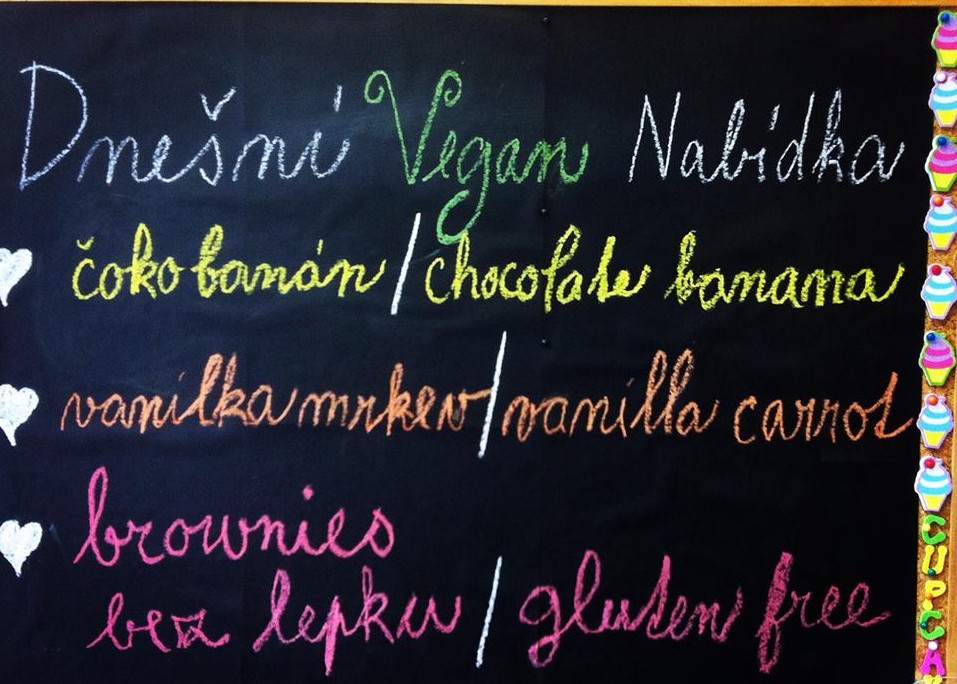 Dnešní Vegan Nabídka
čoko banán / chocolate banana
vanilka mrkev / vanilla carrot
brownies
bez lepku / gluten free
CUPCA